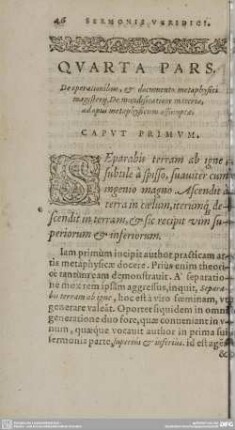 46 SERMONIS VERIDICI.
QVARTA PARS.
De operationibus, & documento metaphysici
magisterij, De mundificatione materiæ,
ad opus metaphysicum assumptæ.
CAPVT PRIMVM.
SEparabis terram ab igne,
subtile à spisso, suauiter cum
ingenio magno. Ascendit à
terra in cœlum, iterumq; de-
scendit in terram, & sic recipit vim su-
periorum & inferiorum.
Iam primum incipit author practicam ar-
tis metaphysicæ docere. Prius enim theori-
cen tantum eam demonstrauit. A separatio-
ne mox rem ipsam aggressus, inquit, Separa-
bis terram ab igne, hoc est à viro fœminam, vt
generare valeat. Oportet siquidem in omni
generatione duo fore, quæ conueniant in v-
num, quæque vocauit author in prima sui
sermonis parte, superius & inferius. id est agẽs
&